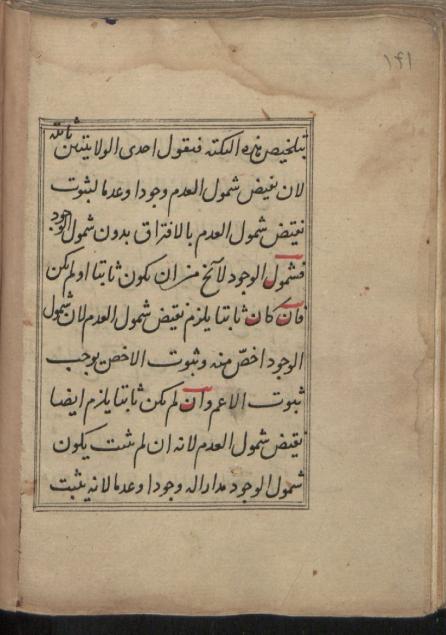 ۱۴۱
بتلخيص هذه النكتة فنقول احدى الولايتين ثابتة
لان نقيض شمول العدم وجودا وعدما لثبوت
نقيض شمول العدم بالافتراق بدون شمول الوجود
فشمول الوجود لا يخ من ان يكون ثابتا او لم يكن
فان كان ثابتا يلزم نقيض شمول العدم لان شمول
الوجود اخصّ منه وثبوت الاخص يوجب
ثبوت الاعم وان لم يكن ثابتا يلزم ايضا
نقيض شمول العدم لانه ان لم يثبت يكون
شمول الوجود مدارا له وجودا وعدما لانه يثبت